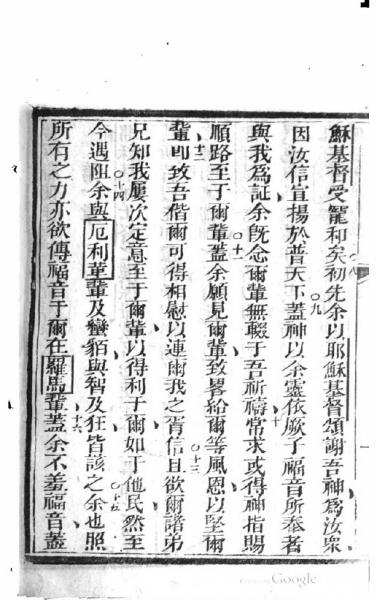 穌基督受寵和矣初先余以耶穌基督頌謝吾神爲汝衆
因汝信宣揚於普天下蓋神以余靈依厥子福音所奉者
與我爲証余旣念爾輩無輟于吾祈禱常求或得神指賜
順路至于爾輩蓋余願見爾輩致畧給爾等風恩以堅爾
輩卽致吾偕爾可得相慰以連爾我之胥信且欲爾諸弟
兄知我屢次定意至于爾輩以得利于爾如于他民然至
今遇阻余與厄利輩輩及蠻貊與智及狂皆該之余也照
所有之力亦欲傳福音于爾在羅馬輩蓋余不羞福音蓋
八
九
十
十一
十二
十三
十四
十五
十六
Google